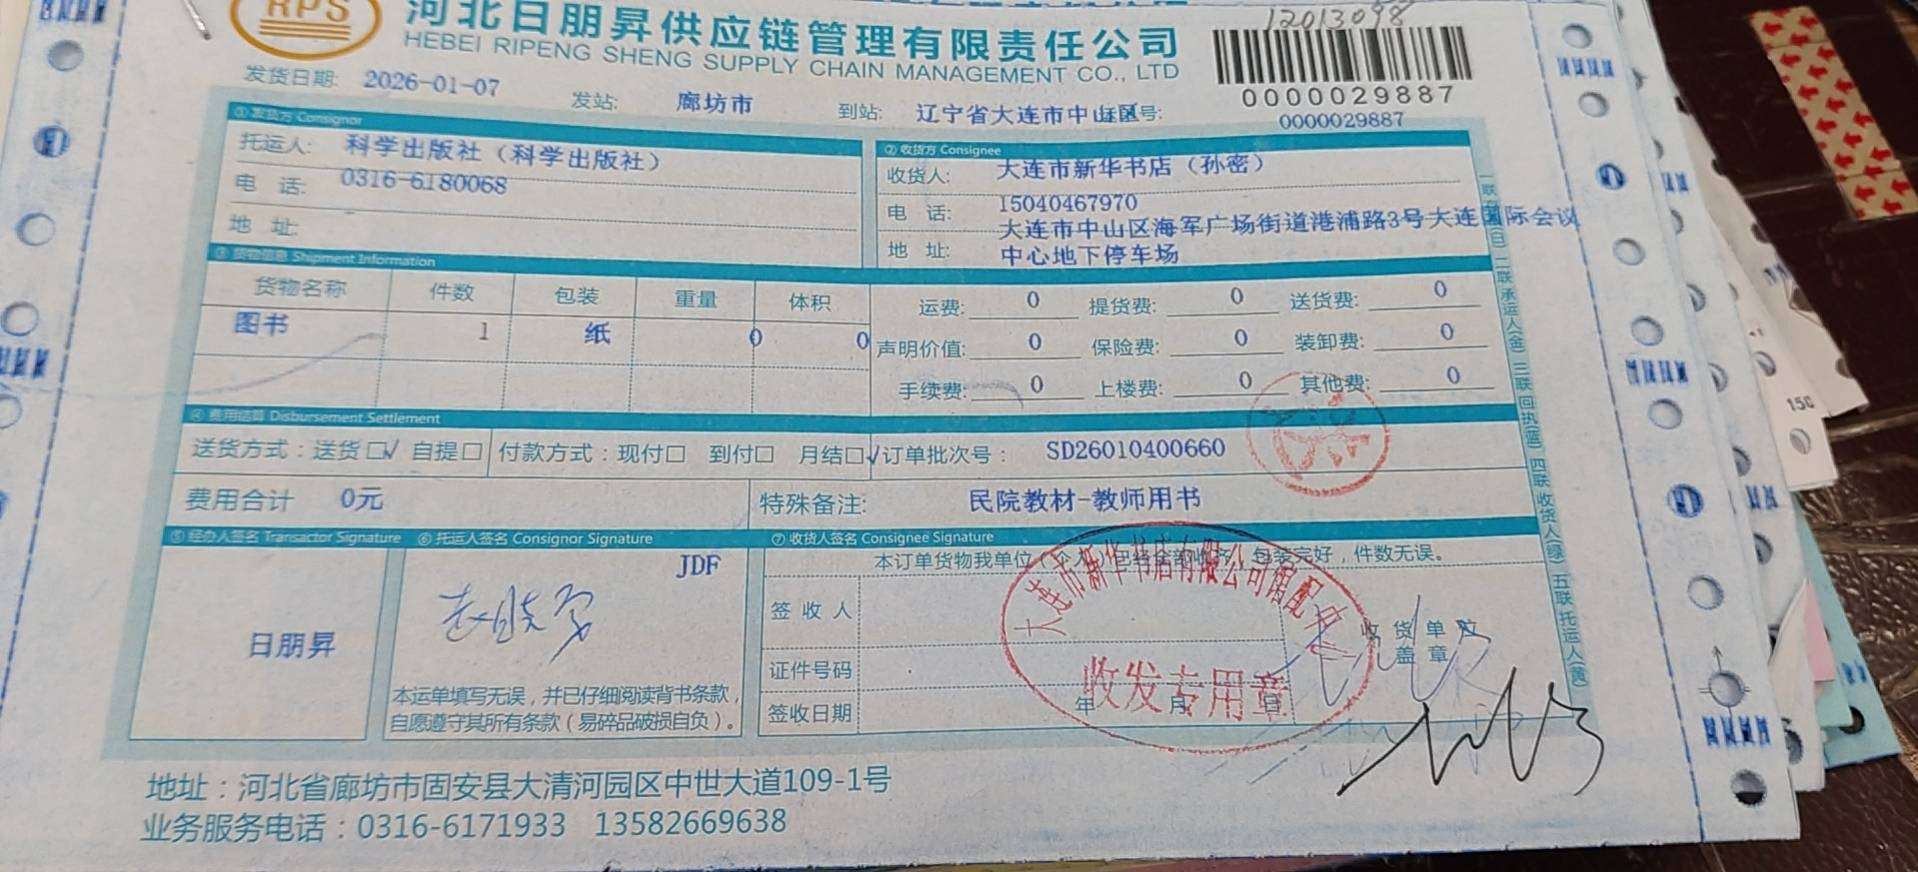 RPS
12013098
河北日朋昇供应链管理有限责任公司
HEBEI RIPENG SHENG SUPPLY CHAIN MANAGEMENT CO., LTD
0000029887
发货日期: 2026-01-07 发站: 廊坊市 到站: 辽宁省大连市中山区 号: 0000029887
①发货方 Consignor
托运人: 科学出版社（科学出版社）
电 话: 0316-6180068
地 址:
②收货方 Consignee
收货人: 大连市新华书店（孙密）
电 话: 15040467970
地 址: 大连市中山区海军广场街道港浦路3号大连国际会议
中心地下停车场
③货物信息 Shipment Information
货物名称 件数 包装 重量 体积
图书 1 纸 0 0
运费: 0 提货费: 0 送货费: 0
声明价值: 0 保险费: 0 装卸费: 0
手续费: 0 上楼费: 0 其他费: 0
④费用结算 Disbursement Settlement
送货方式：送货□√ 自提□ 付款方式：现付□ 到付□ 月结□√ 订单批次号： SD26010400660
费用合计 0元 特殊备注: 民院教材-教师用书
⑤经办人签名 Transactor Signature ⑥托运人签名 Consignor Signature ⑦收货人签名 Consignee Signature
日朋昇
JDF
本运单填写无误，并已仔细阅读背书条款，
自愿遵守其所有条款（易碎品破损自负）。
本订单货物我单位（个人）已经全部收齐，包装完好，件数无误。
签 收 人
证件号码
签收日期 年 月 日
收 货 单 位
盖 章
大连市新华书店有限公司
收发专用章
二联承运人(金) 三联回执(蓝) 四联收货人(绿) 五联托运人(黄)
地址：河北省廊坊市固安县大清河园区中世大道109-1号
业务服务电话：0316-6171933 13582669638
150